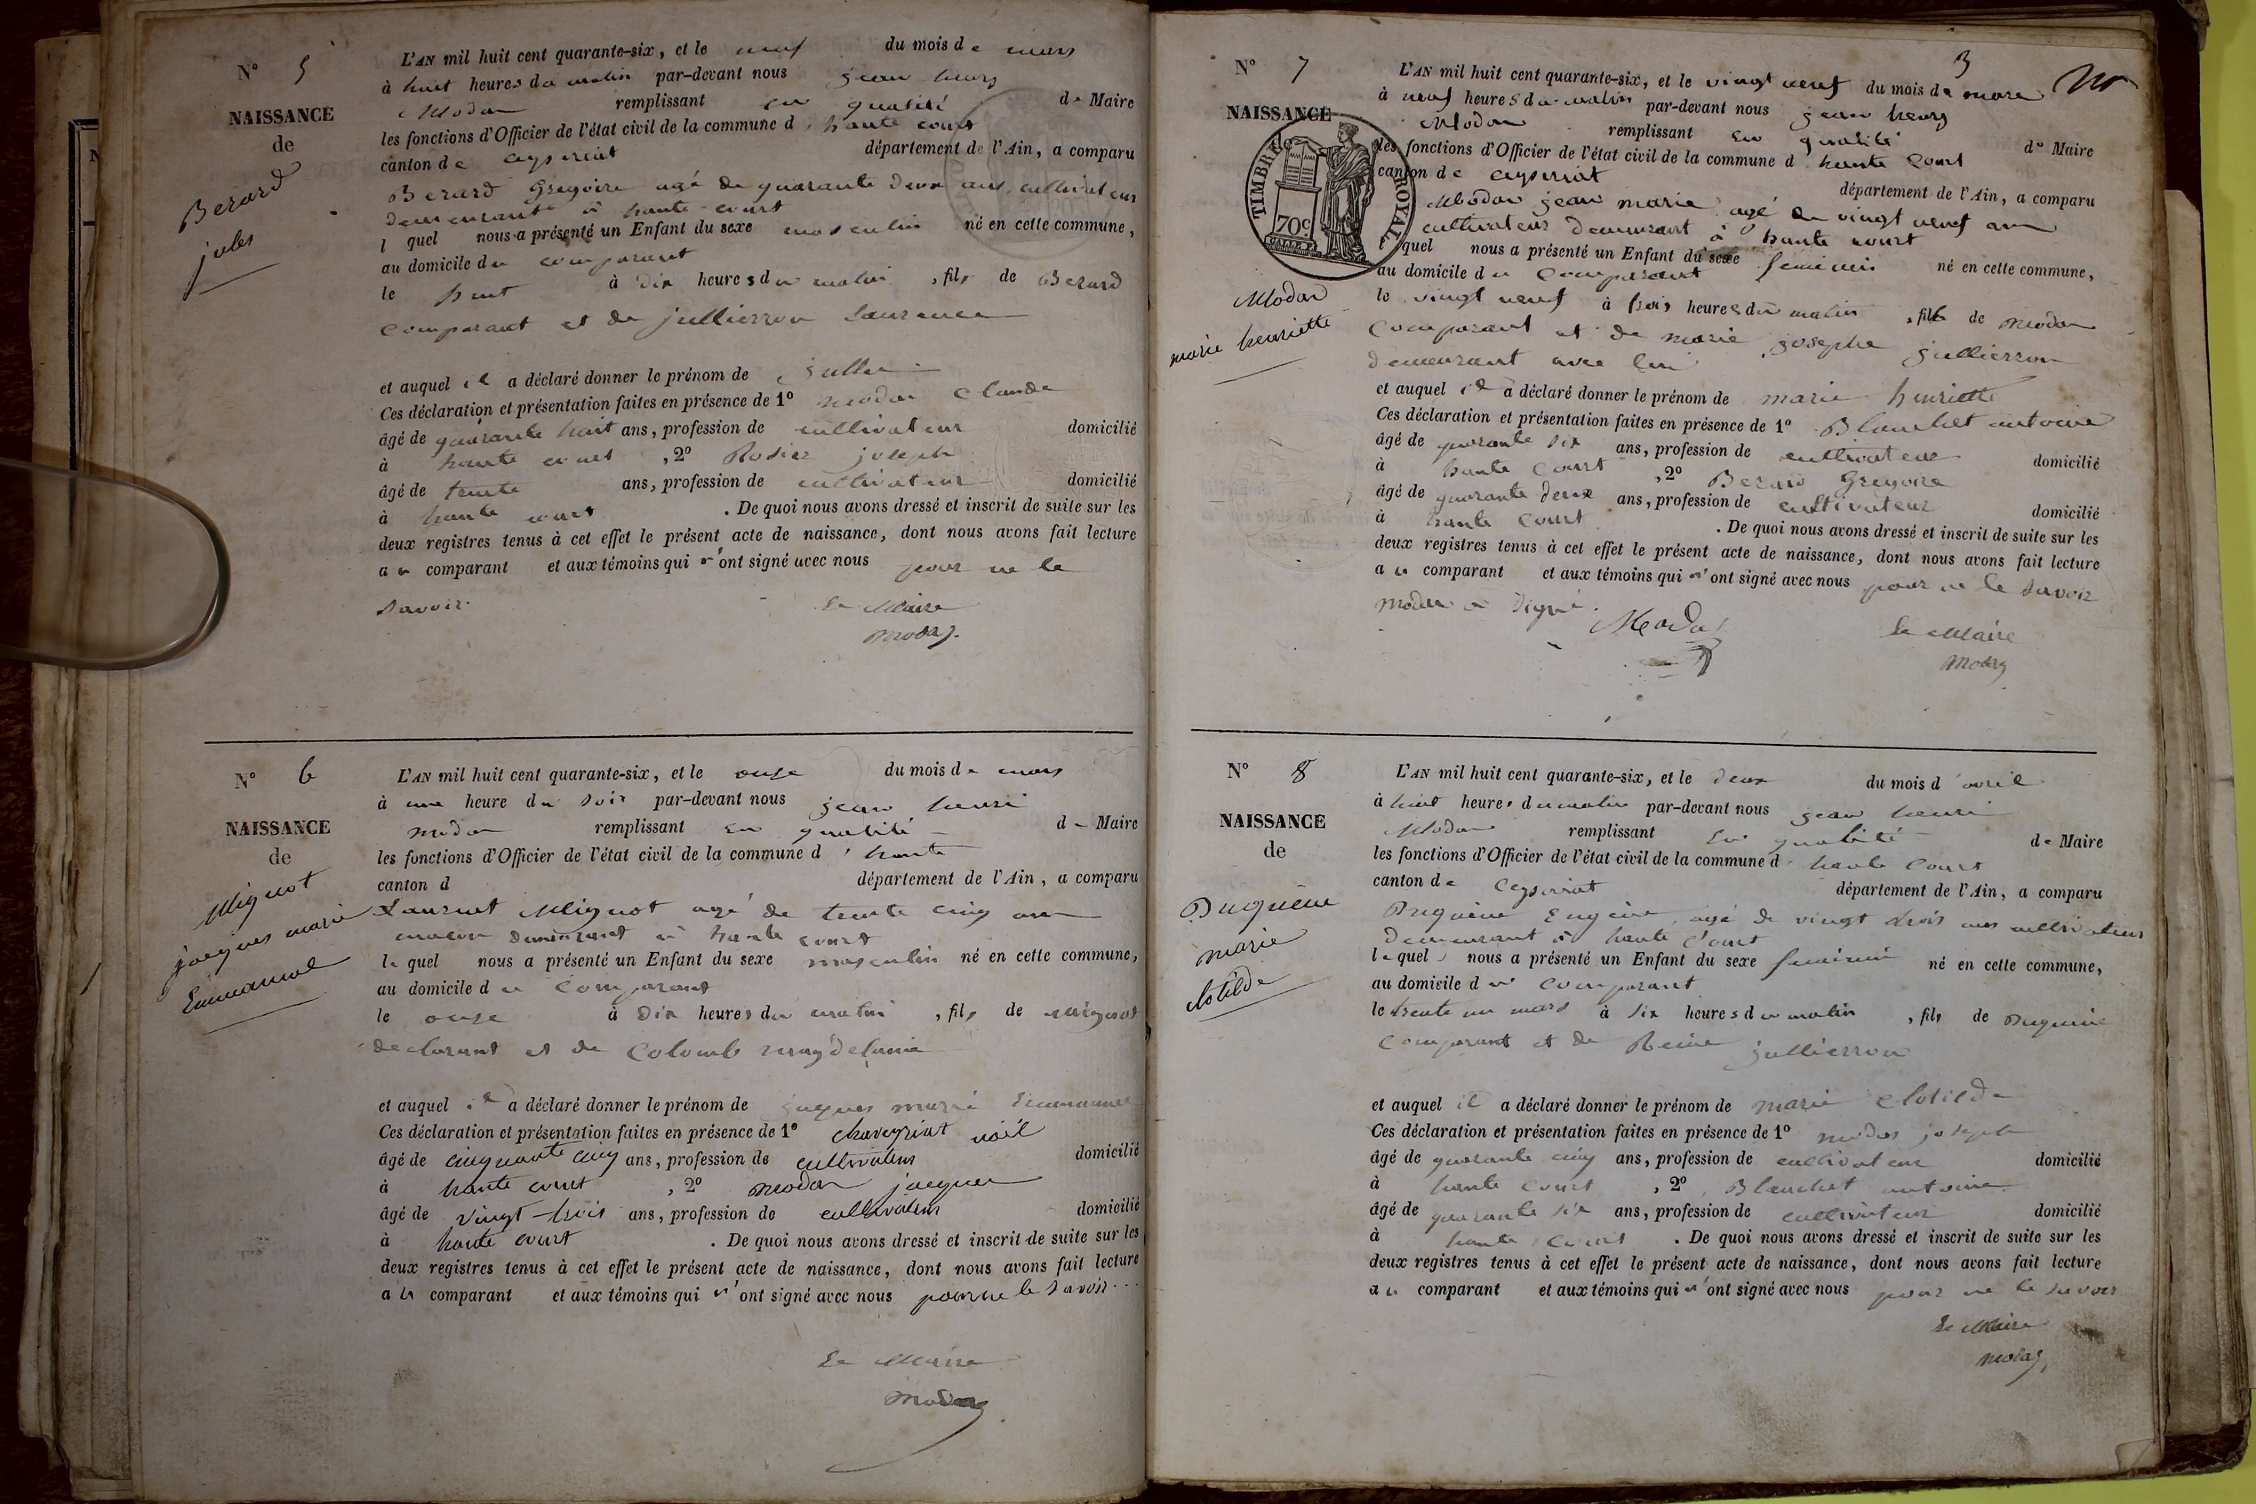 N° 5
NAISSANCE
de
Berard
jules
L'AN mil huit cent quarante-six, et le neuf du mois de mars
à huit heures du matin par-devant nous jean henry
Modas remplissant en qualité de Maire
les fonctions d'Officier de l'état civil de la commune d'haute court
canton de Ceyseriat département de l'Ain, a comparu
Berard Gregoire agé de quarante deux ans, cultivateur
demeurant à haute court
l quel nous a présenté un Enfant du sexe masculin né en cette commune,
au domicile du comparant
le huit à dix heures du matin, fils de Berard
comparant et de jullierron Laurence
et auquel il a déclaré donner le prénom de
Ces déclaration et présentation faites en présence de 1° modas Claude
âgé de quarante huit ans, profession de cultivateur domicilié
à haute court, 2° Rosier joseph
âgé de trente ans, profession de cultivateur domicilié
à haute court. De quoi nous avons dressé et inscrit de suite sur les
deux registres tenus à cet effet le présent acte de naissance, dont nous avons fait lecture
au comparant et aux témoins qui n'ont signé avec nous pour ne le
savoir. Le Maire
Modas
N° 6
NAISSANCE
de
Mignot
jacques marie
Emmanuel
L'AN mil huit cent quarante-six, et le onze du mois de mars
à une heure du soir par-devant nous jean henri
modas remplissant en qualité de Maire
les fonctions d'Officier de l'état civil de la commune d'haute
canton d département de l'Ain, a comparu
Laurent Mignot agé de trente cinq ans
macon demeurant à haute court
le quel nous a présenté un Enfant du sexe masculin né en cette commune,
au domicile du comparant
le onze à dix heures du matin, fils de mignot
declarant et de Colomb
et auquel il a déclaré donner le prénom de jacques marie Emmanuel
Ces déclaration et présentation faites en présence de 1° chaveyriat noël
âgé de cinquante cinq ans, profession de cultivateur domicilié
à haute court, 2° modas jacques
âgé de vingt-trois ans, profession de cultivateur domicilié
à haute court. De quoi nous avons dressé et inscrit de suite sur les
deux registres tenus à cet effet le présent acte de naissance, dont nous avons fait lecture
au comparant et aux témoins qui n'ont signé avec nous pour ne le savoir...
Le Maire
Modas
3
N° 7
NAISSANCE
de
TIMBRE ROYAL
70c
Modas
marie henriette
L'AN mil huit cent quarante-six, et le vingt neuf du mois de mars
à neuf heures du matin par-devant nous jean henry
Modas remplissant en qualité de Maire
les fonctions d'Officier de l'état civil de la commune d'haute Court
canton de Ceyseriat département de l'Ain, a comparu
Modas jean marie agé de vingt neuf ans
cultivateur demeurant à haute court
quel nous a présenté un Enfant du sexe feminin né en cette commune,
au domicile du comparant
le vingt neuf à trois heures du matin, fille de modas
comparant et de marie josephe jullierron
demeurant avec lui
et auquel il a déclaré donner le prénom de marie henriette
Ces déclaration et présentation faites en présence de 1° Blanchet antoine
âgé de quarante six ans, profession de cultivateur domicilié
à haute Court, 2° Berard Gregoire
âgé de quarante deux ans, profession de cultivateur domicilié
à haute Court. De quoi nous avons dressé et inscrit de suite sur les
deux registres tenus à cet effet le présent acte de naissance, dont nous avons fait lecture
au comparant et aux témoins qui n'ont signé avec nous pour ne le savoir
modas a signé.
Modas Le Maire
Modas
N° 8
NAISSANCE
de
Duquène
marie
clotilde
L'AN mil huit cent quarante-six, et le deux du mois d'avril
à huit heures du matin par-devant nous jean henri
Modas remplissant en qualité de Maire
les fonctions d'Officier de l'état civil de la commune d'haute Court
canton de Ceyseriat département de l'Ain, a comparu
Duquène Eugène, agé de vingt trois ans cultivateur
demeurant à haute Court
lequel nous a présenté un Enfant du sexe feminin né en cette commune,
au domicile du comparant
le trente un mars à six heures du matin, fils de Duquène
Comparant et de Reine jullierron
et auquel il a déclaré donner le prénom de marie Clotilde
Ces déclaration et présentation faites en présence de 1° modas joseph
âgé de quarante cinq ans, profession de cultivateur domicilié
à haute Court, 2° Blanchet antoine
âgé de quarante six ans, profession de cultivateur domicilié
à haute Court. De quoi nous avons dressé et inscrit de suite sur les
deux registres tenus à cet effet le présent acte de naissance, dont nous avons fait lecture
au comparant et aux témoins qui n'ont signé avec nous pour ne le savoir
Le Maire
Modas